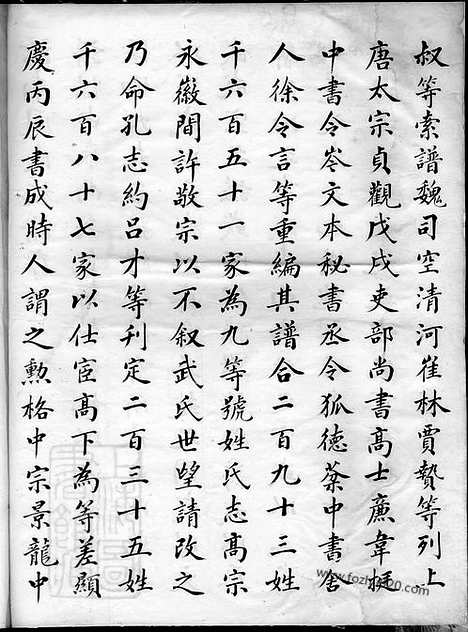 叔等索譜魏司空清河崔林賈贄等列上
唐太宗貞觀戊戌吏部尚書高士廉韋挺
中書令岑文本秘書丞令狐德棻中書舍
人徐令言等重編其譜合二百九十三姓
千六百五十一家為九等號姓氏志高宗
永徽間許敬宗以不叙武氏世望請改之
乃命孔志約吕才等刊定二百三十五姓
千六百八十七家以仕宦高下為等差顯
慶丙辰書成時人謂之勲格中宗景龍中